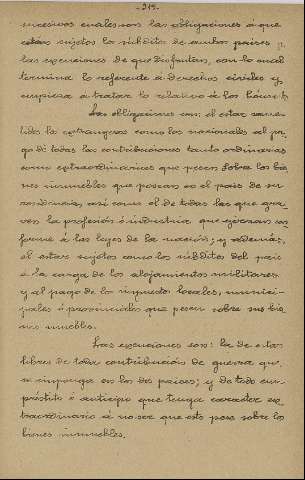 -219-
sucesivos cuales son las obligaciones á que
están sujetos los súbditos de ambos paises y
las exenciones de que disfrutan, con lo cual
termina lo referente á derechos civiles y
empieza á tratar lo relativo á los
Las obligaciones son: el estar some-
tidos los extrangeros como los nacionales al pa-
go de todas las contribuciones tanto ordinarias
como extraordinarias que pesen sobre los bie-
nes inmuebles que posean en el pais de su
residencia, así como el de todas las que gra-
ven la profesión ó industria que ejerzan con
forme á las leyes de la nación; y además,
el estar sujetos como los súbditos del pais
á la carga de los alojamientos militares
y al pago de los impuestos locales, munici-
pales ó provinciales que pesen sobre sus bie
nes inmuebles.
Las exenciones son: la de estar
libres de toda contribución de guerra que
se imponga en los dos paises; y de todo em-
préstito ó anticipo que tenga carácter ex-
traordinario á no ser que este pese sobre los
bienes inmuebles.